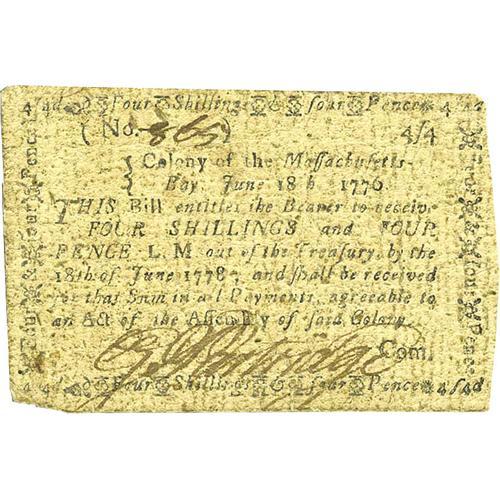 4/4d Four Shillings & four Pence 4/4d
(No. 865) 4/4
Colony of the Massachusetts-
Bay June 18th. 1776
THIS Bill entitles the Bearer to receive
FOUR SHILLINGS and FOUR
PENCE L. M out of the Treasury, by the
18th of June 1778, and shall be received
for that Sum in all Payments, agreeable to
an Act of the Assembly of said Colony
Partridge Com.
4/4d Four Shillings & four Pence 4/4d